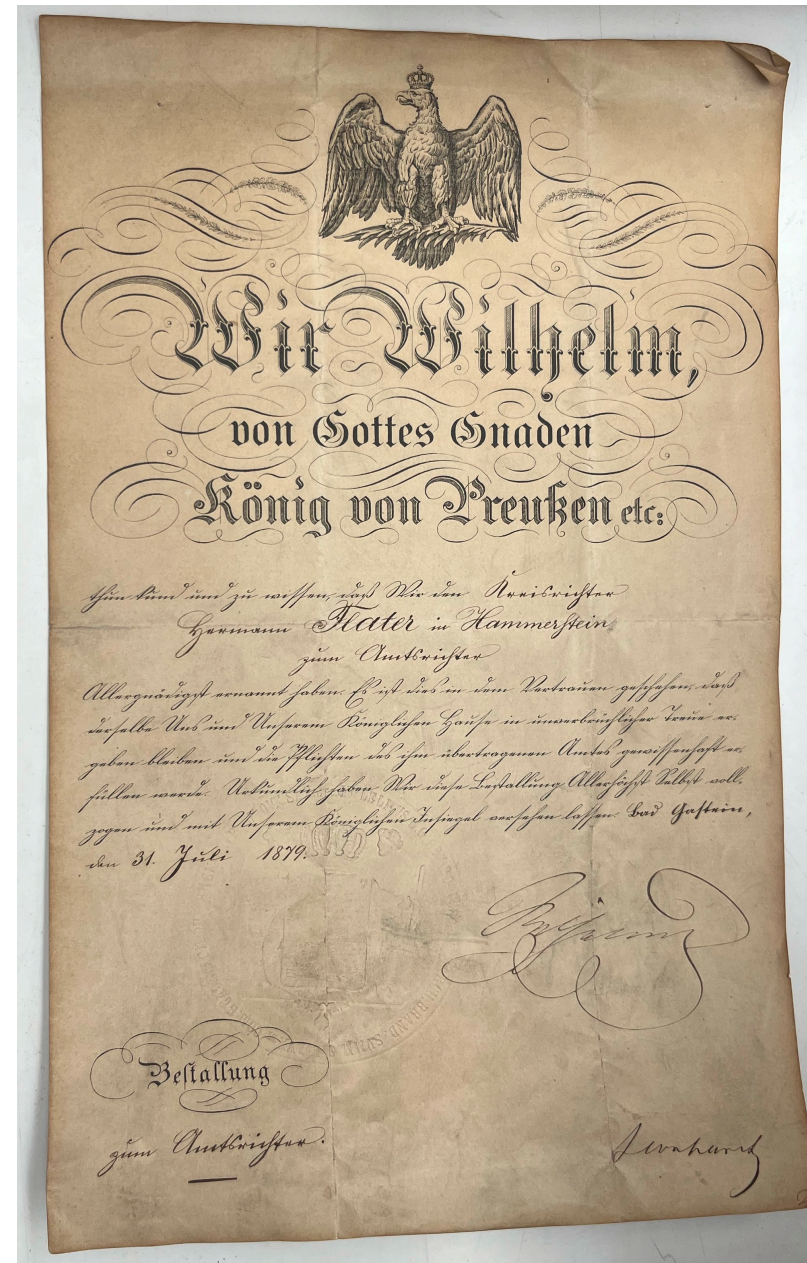 Wir Wilhelm,
von Gottes Gnaden
König von Preußen etc:
thun kund und zu wissen, daß Wir den Kreisrichter
Hermann Flater in Hammerstein
zum Amtsrichter
Allergnädigst ernannt haben. Es ist dies in dem Vertrauen geschehen, daß
derselbe Uns und Unserem Königlichen Hause in unverbrüchlicher Treue er-
geben bleiben und die Pflichten des ihm übertragenen Amtes gewissenhaft er-
füllen werde. Urkundlich haben Wir diese Bestallung Allerhöchst Selbst voll-
zogen und mit Unserem Königlichen Insiegel versehen lassen. Bad Gastein,
den 31. Juli 1879.
Wilhelm
Bestallung
zum Amtsrichter.
Leonhardt